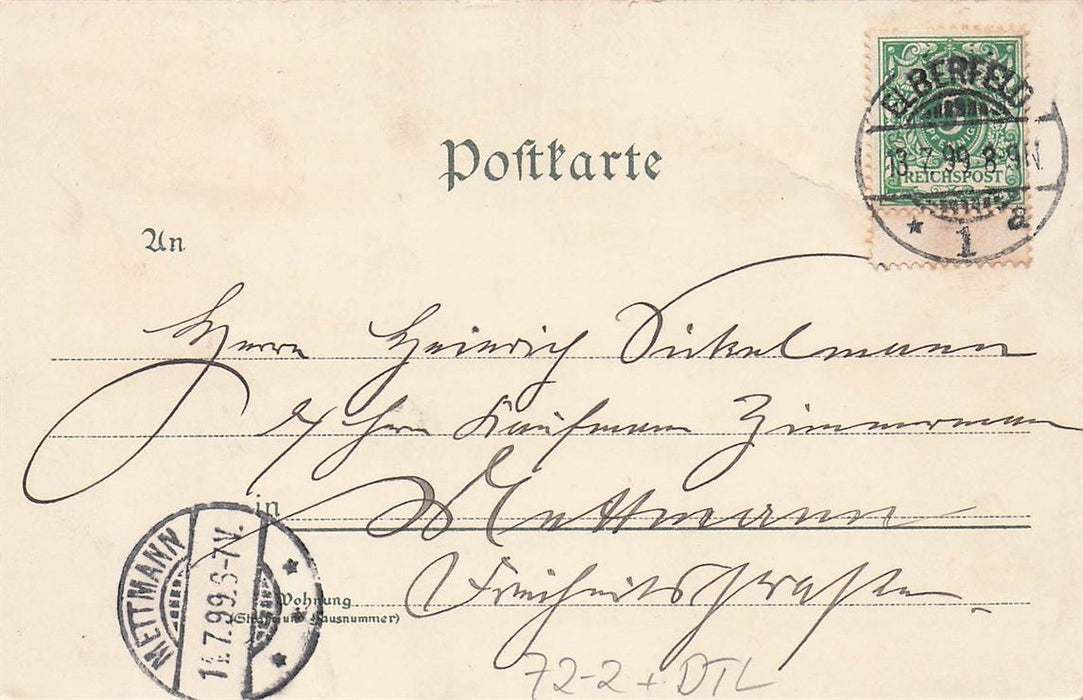 Postkarte
ELBERFELD
13.7.99.8-9N.
REICHSPOST
* 1 a
An
Herrn Heinrich Dickelmann
Herrn Kaufmann Zimmermann
in Mettmann
METTMANN
14.7.99.6-7V.
Wohnung
(Straße und Hausnummer)
Freiheitsstraße
72-2 + DTL